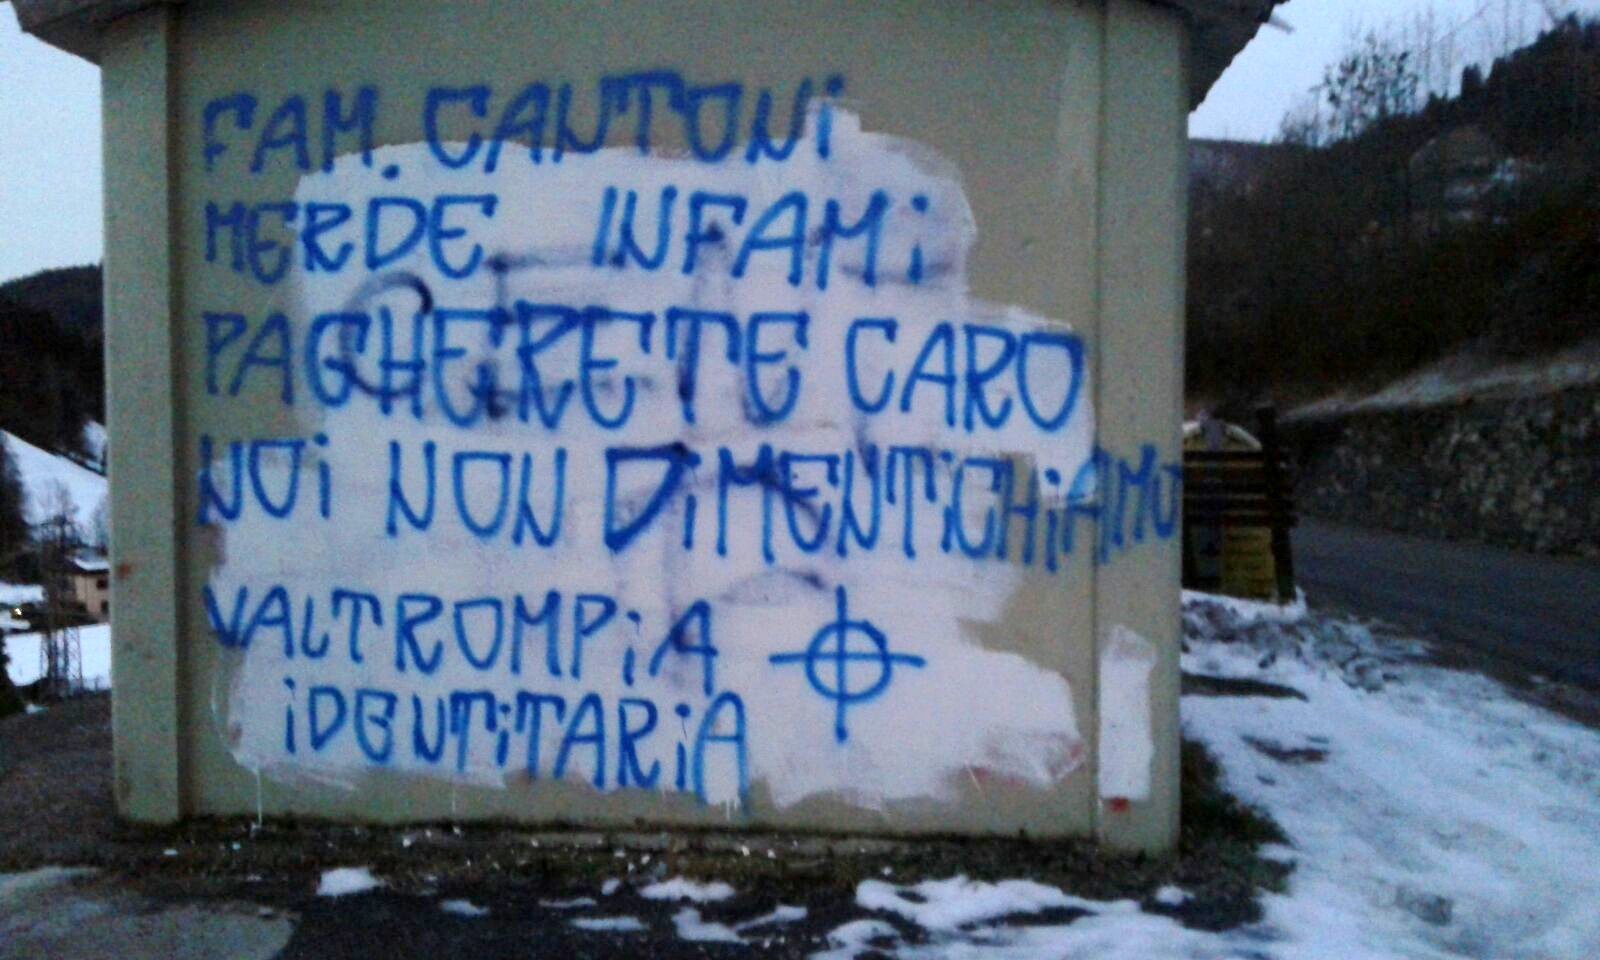 FAM. CANTONi
MERDE INFAMi
PAGHERETE CARO
NOi NON DiMENTiCHiAMO
VALTROMPiA
iDENTiTARiA